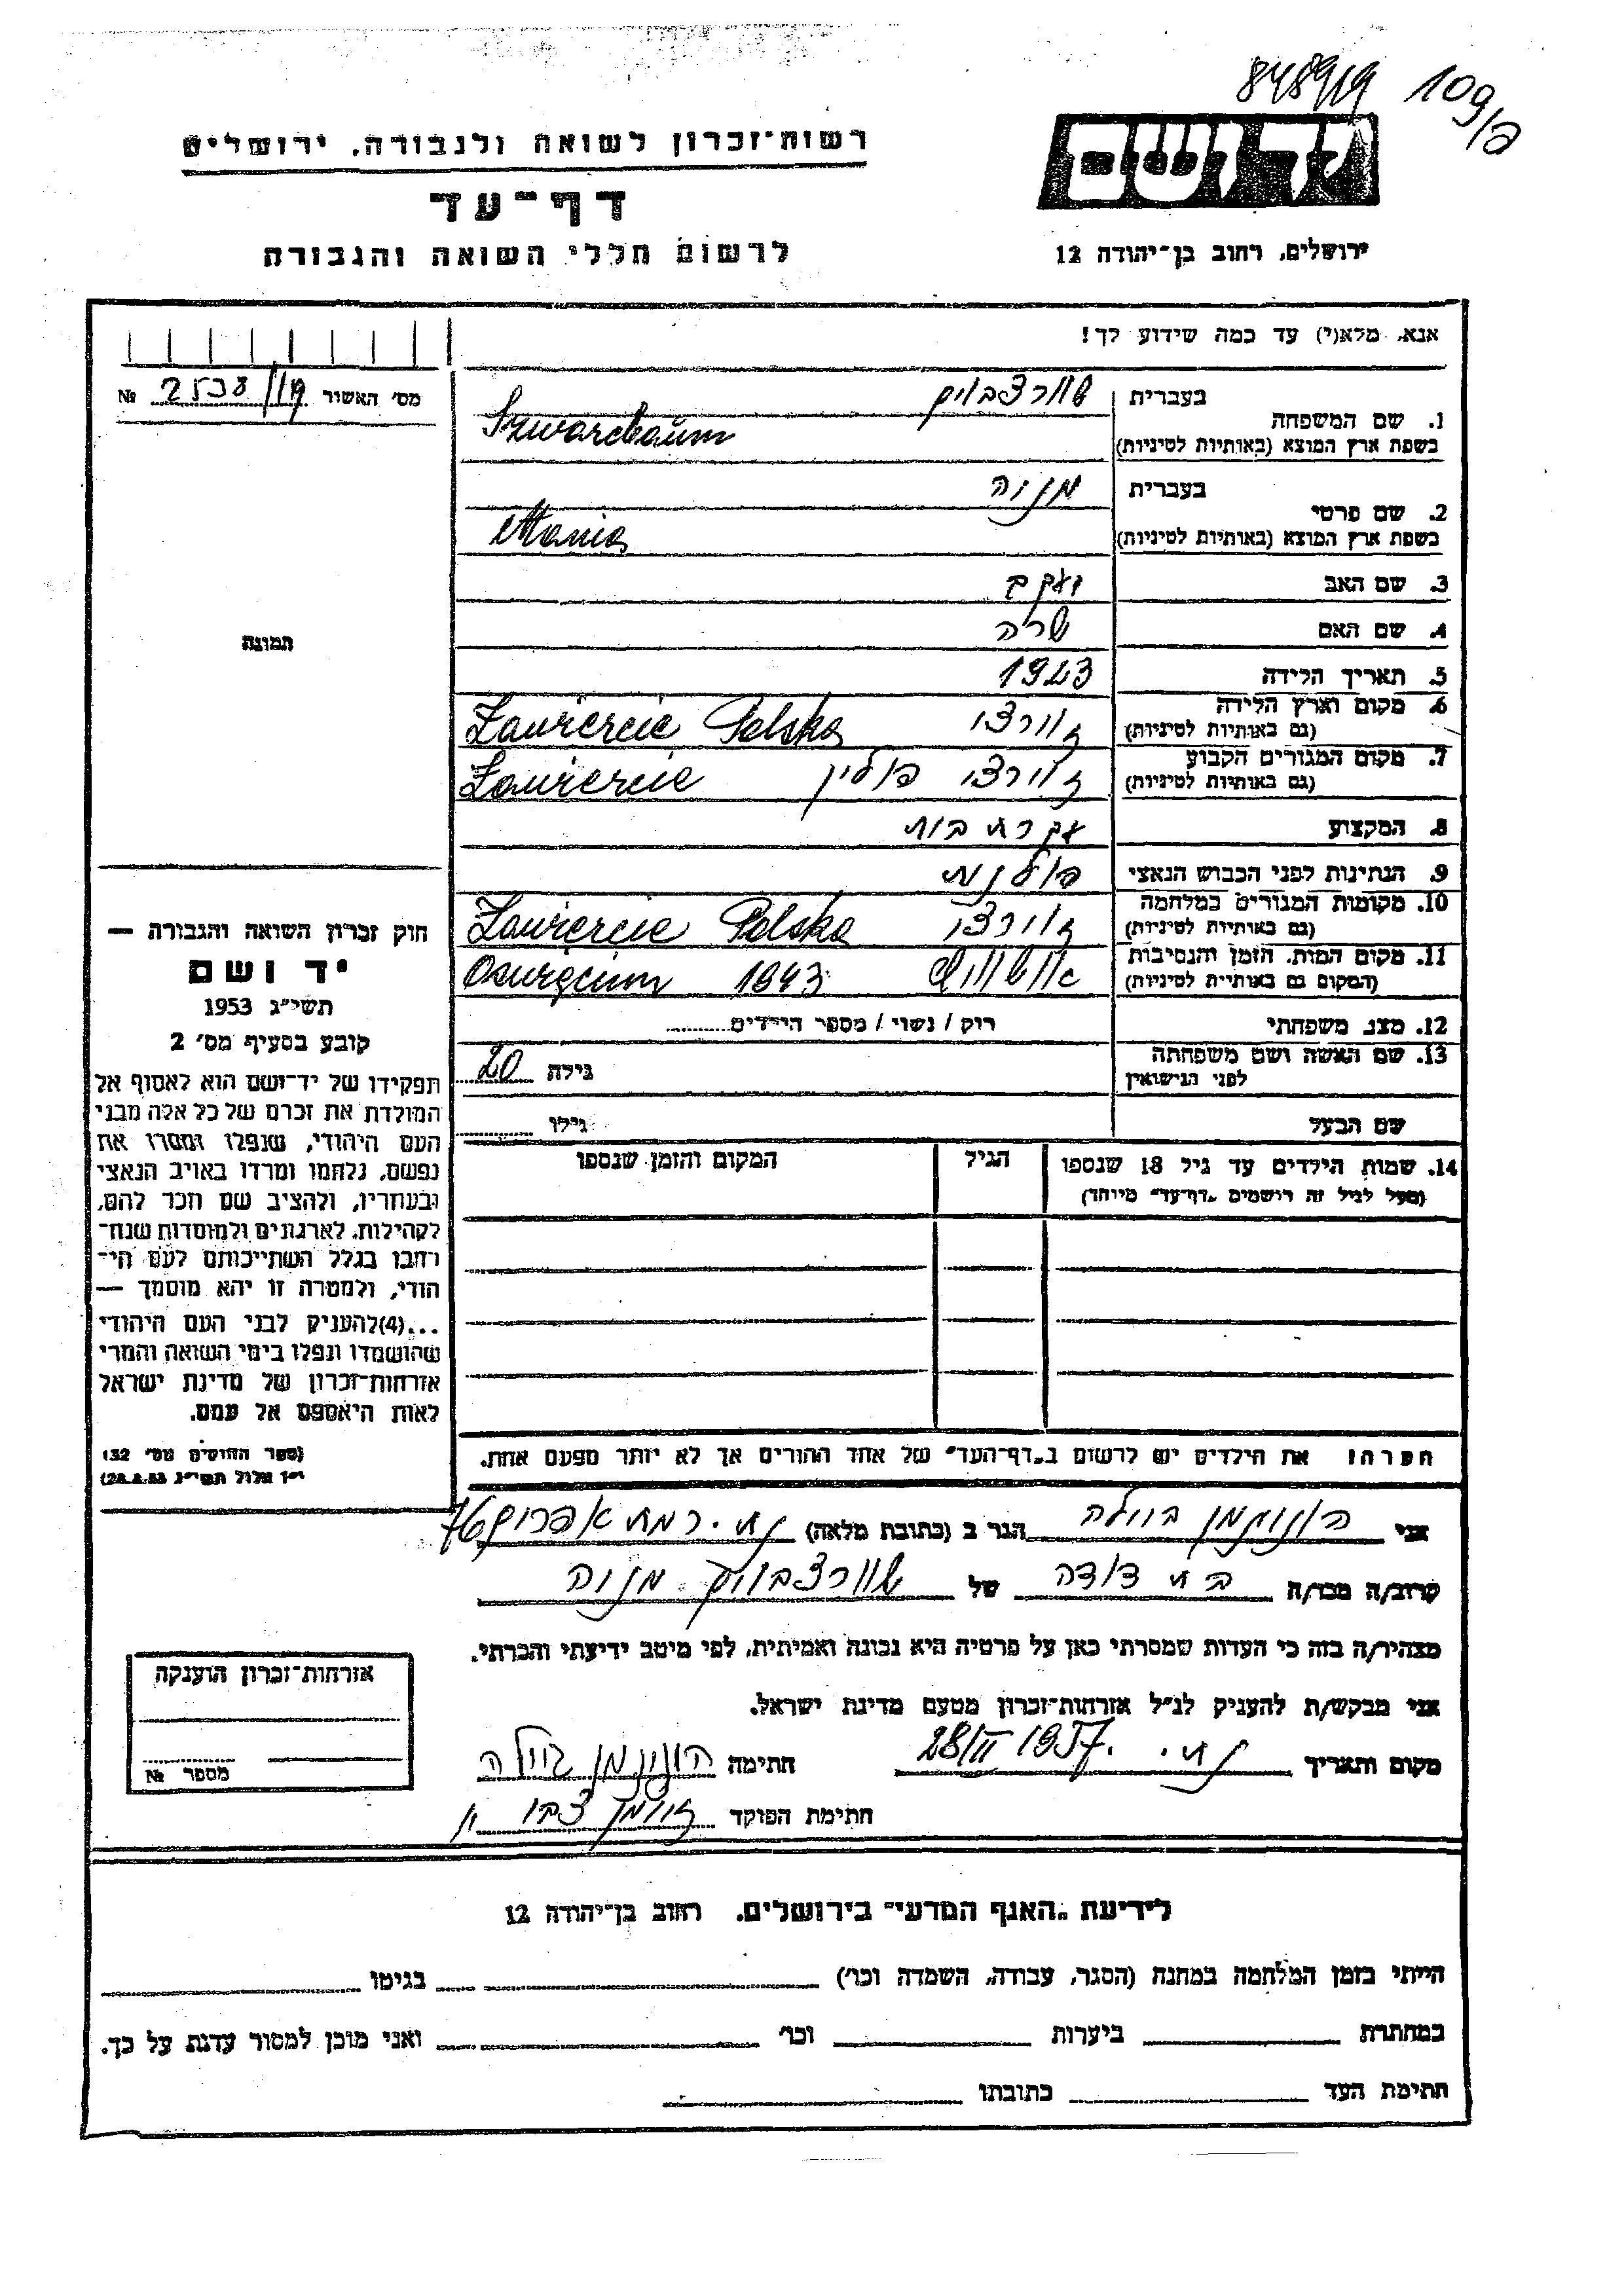 84899 109/ה
רשות־זכרון לשואה ולגבורה, ירושלים
יד ושם
דף־עד
לרשום חללי השואה והגבורה
ירושלים, רחוב בן־יהודה 12
אנא, מלא(י) עד כמה שידוע לך!
מס' האשור № 2538
בעברית שוורצבוים
1. שם המשפחה
בשפת ארץ המוצא (באותיות לטיניות) Szwarcbaum
בעברית מניה
2. שם פרטי
בשפת ארץ המוצא (באותיות לטיניות) Mania
3. שם האב יעקב
4. שם האם שרה
5. תאריך הלידה 1923
6. מקום וארץ הלידה
(גם באותיות לטיניות) זוירצי Zawiercie Polska
7. מקום המגורים הקבוע
(גם באותיות לטיניות) זוירצי פולין Zawiercie
8. המקצוע עקרת בית
9. הנתינות לפני הכבוש הנאצי פולנית
10. מקומות המגורים במלחמה
(גם באותיות לטיניות) זוירצי Zawiercie Polska
11. מקום המות, הזמן והנסיבות
(המקום גם באותיות לטיניות) אושוויץ 1943 Oswięcim
12. מצב משפחתי רוק / נשוי / מספר הילדים
13. שם האשה ושם משפחתה
לפני הנישואין גילה 20
שם הבעל גילו
14. שמות הילדים עד גיל 18 שנספו הגיל המקום והזמן שנספו
(מעל לגיל זה רושמים „דף־עד” מיוחד)
תמונה
חוק זכרון השואה והגבורה —
יד ושם
תשי״ג 1953
קובע בסעיף מס' 2
תפקידו של יד־ושם הוא לאסוף אל
המולדת את זכרם של כל אלה מבני
העם היהודי, שנפלו ומסרו את
נפשם, נלחמו ומרדו באויב הנאצי
ובעוזריו, ולהציב שם וזכר להם,
לקהילות, לארגונים ולמוסדות שנח־
רבו בגלל השתייכותם לעם הי־
הודי, ולמטרה זו יהא מוסמך —
...(4) להעניק לבני העם היהודי
שהושמדו ונפלו בימי השואה והמרי
אזרחות־זכרון של מדינת ישראל
לאות היאספם אל עמם.
(ספר החוקים מס' 132
י״ז אלול תשי״ג 28.8.53)
הערה: את הילדים יש לרשום ב„דף־העד” של אחד ההורים אך לא יותר מפעם אחת.
אני בוילה הגר ב (כתובת מלאה) ת״א. רמת
קרוב/ה מכר/ה בת דודה של שוורצבוים מניה
מצהיר/ה בזה כי העדות שמסרתי כאן על פרטיה היא נכונה ואמיתית, לפי מיטב ידיעתי והכרתי.
אני מבקש/ת להעניק לנ״ל אזרחות־זכרון מטעם מדינת ישראל.
מקום ותאריך ת״א. 28/II 1957. חתימה בוילה
חתימת הפוקד
אזרחות־זכרון הוענקה
מספר №
לידיעת „האגף המדעי” בירושלים, רחוב בן־יהודה 12
הייתי בזמן המלחמה במחנה (הסגר, עבודה, השמדה וכו') בגיטו
במחתרת ביערות וכו' ואני מוכן למסור עדות על כך.
חתימת העד כתובתו